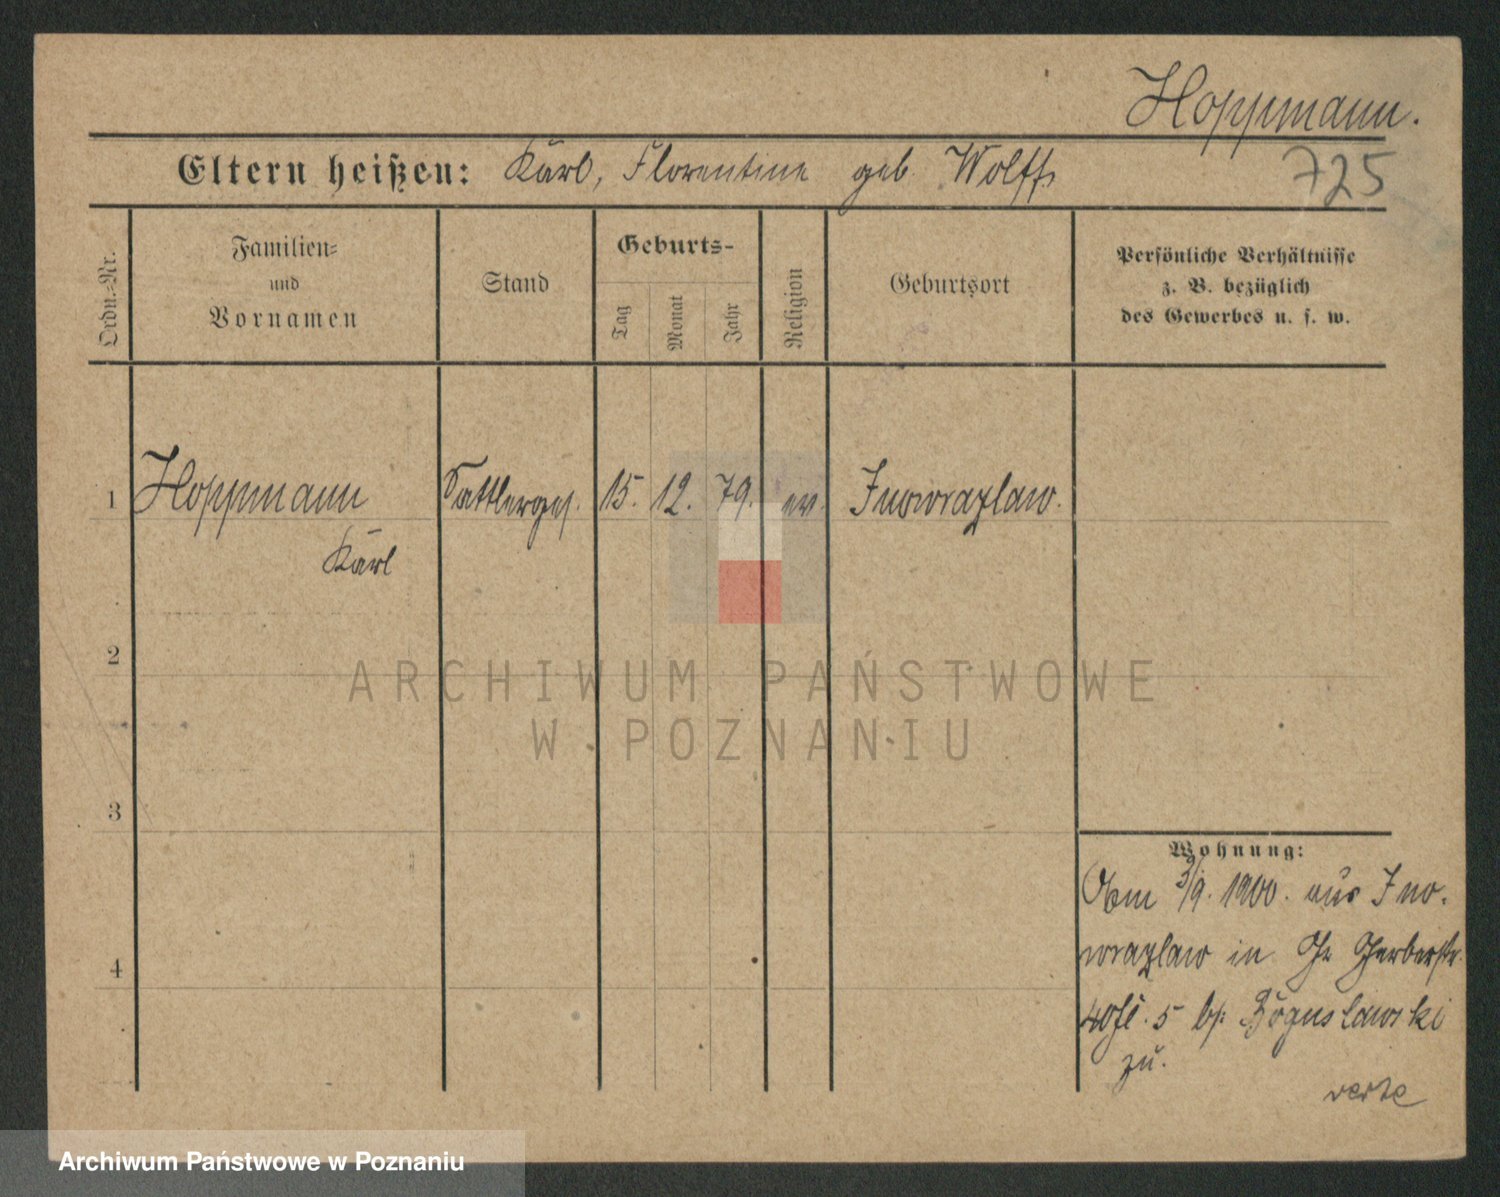 Hoppmann.
Eltern heißen: Karl, Florentine geb. Wolff
725
Ordn.-Nr.
Familien-
und
Vornamen
Stand
Geburts-
Tag
Monat
Jahr
Religion
Geburtsort
Persönliche Verhältnisse
z. B. bezüglich
des Gewerbes u. s. w.
1 Hoppmann Sattlerges. 15. 12. 79. ev. Inowrazlaw.
Karl
2
ARCHIWUM PAŃSTWOWE
W POZNANIU
3
4
Wohnung:
3/9. 1900. aus Ino-
wrazlaw in Gr Gerberstr.
40 5 b/: Boguslawski
zu.
verte
Archiwum Państwowe w Poznaniu